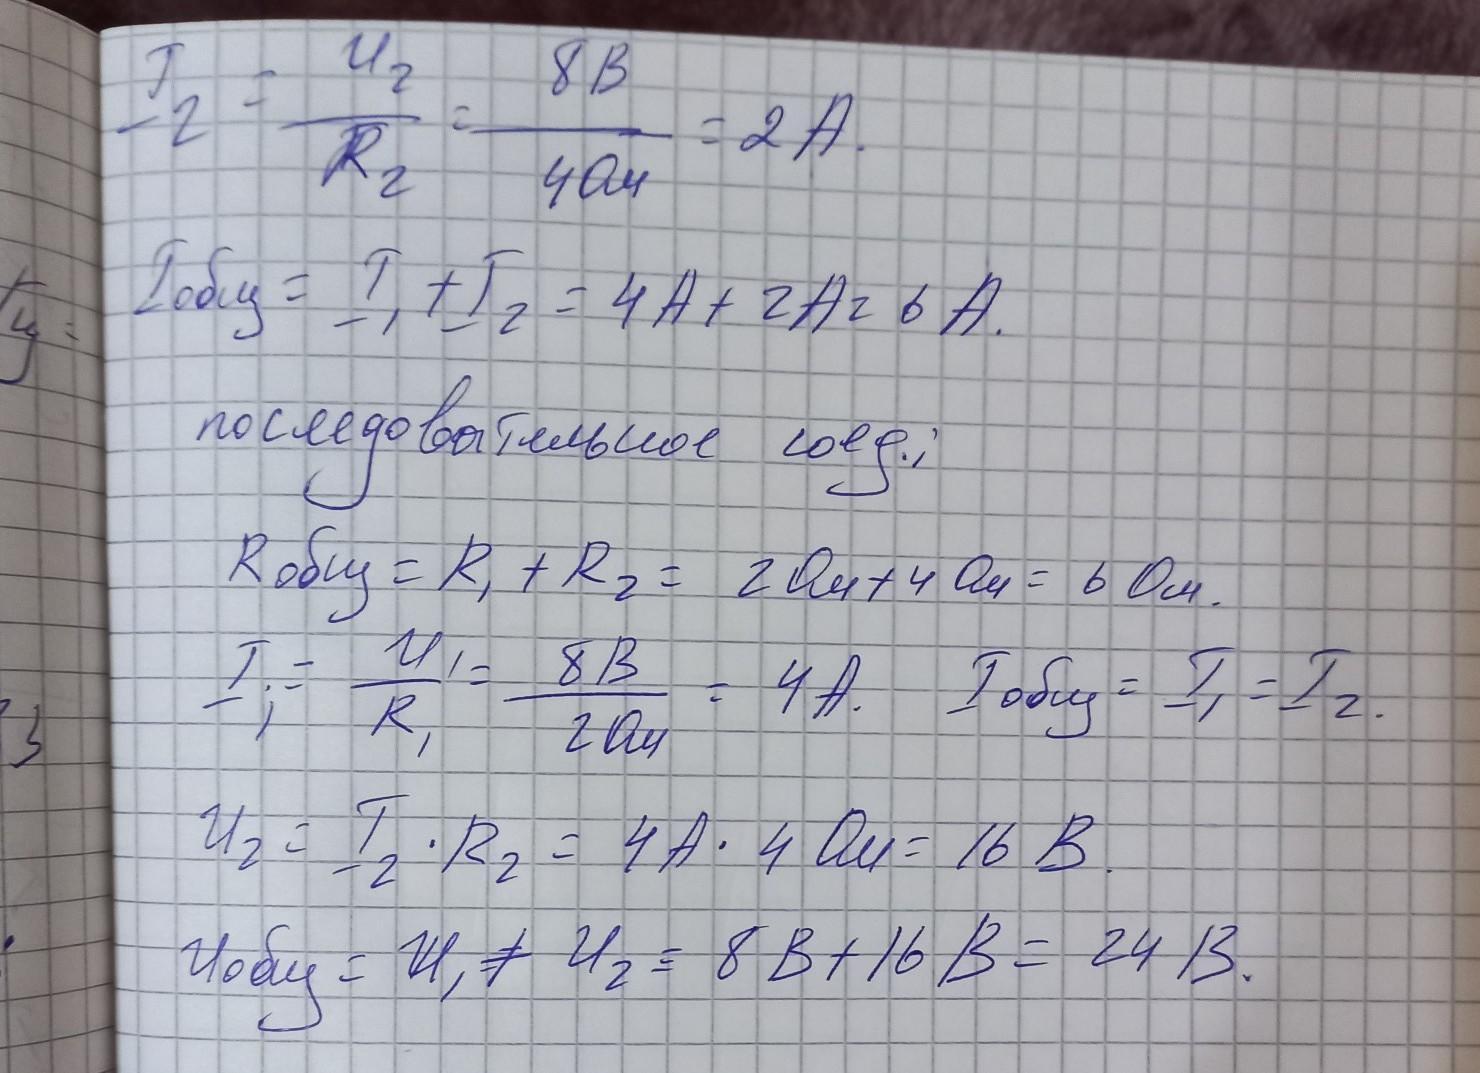 I₂ = U₂/R₂ = 8В/4Ом = 2А.
Iобщ = I₁ + I₂ = 4А + 2А = 6 А.
последовательное соед.;
Rобщ = R₁ + R₂ = 2Ом + 4Ом = 6 Ом.
I₁ = U₁/R₁ = 8В/2Ом = 4А. Iобщ = I₁ = I₂.
U₂ = I₂ · R₂ = 4А · 4 Ом = 16 В.
Uобщ = U₁ + U₂ = 8В + 16В = 24 В.